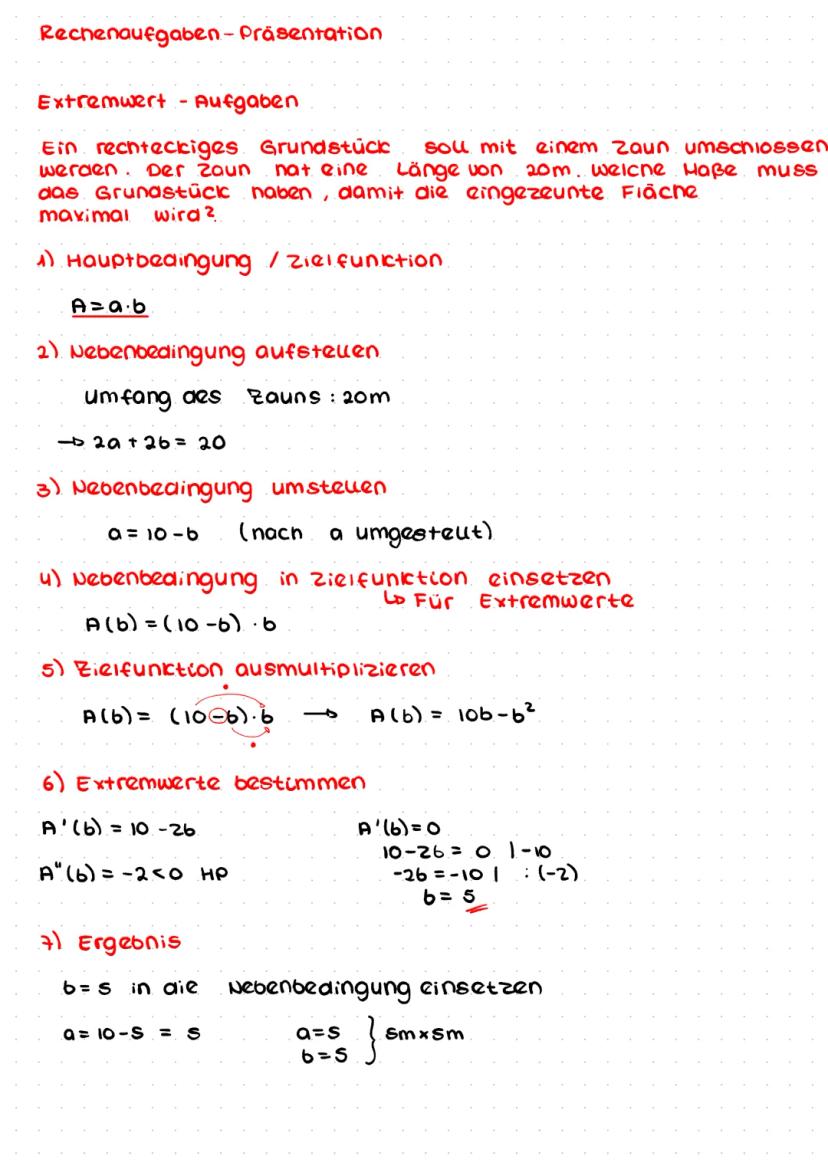 Rechenaufgaben - Präsentation
Extremwert - Aufgaben
Ein rechteckiges Grundstück soll mit einem Zaun umschlossen
werden. Der Zaun hat eine Länge von 20m. Welche Maße muss
das Grundstück haben, damit die eingezeunte Fläche
maximal wird?
1) Hauptbedingung / Zielfunktion
A=a·b
2) Nebenbedingung aufstellen
Umfang des Zauns : 20m
→ 2a + 2b = 20
3) Nebenbedingung umstellen
a = 10 - b (nach a umgestellt)
4) Nebenbedingung in Zielfunktion einsetzen
↳ Für Extremwerte
A(b) = (10 - b) · b
5) Zielfunktion ausmultiplizieren
A(b) = (10 - b) · b → A(b) = 10b - b²
6) Extremwerte bestimmen
A'(b) = 10 - 2b A'(b) = 0
10 - 2b = 0 | -10
A"(b) = -2 < 0 HP -2b = -10 | : (-2)
b = 5
7) Ergebnis
b = 5 in die Nebenbedingung einsetzen
a = 10 - 5 = 5 a = 5 } 5m x 5m
b = 5